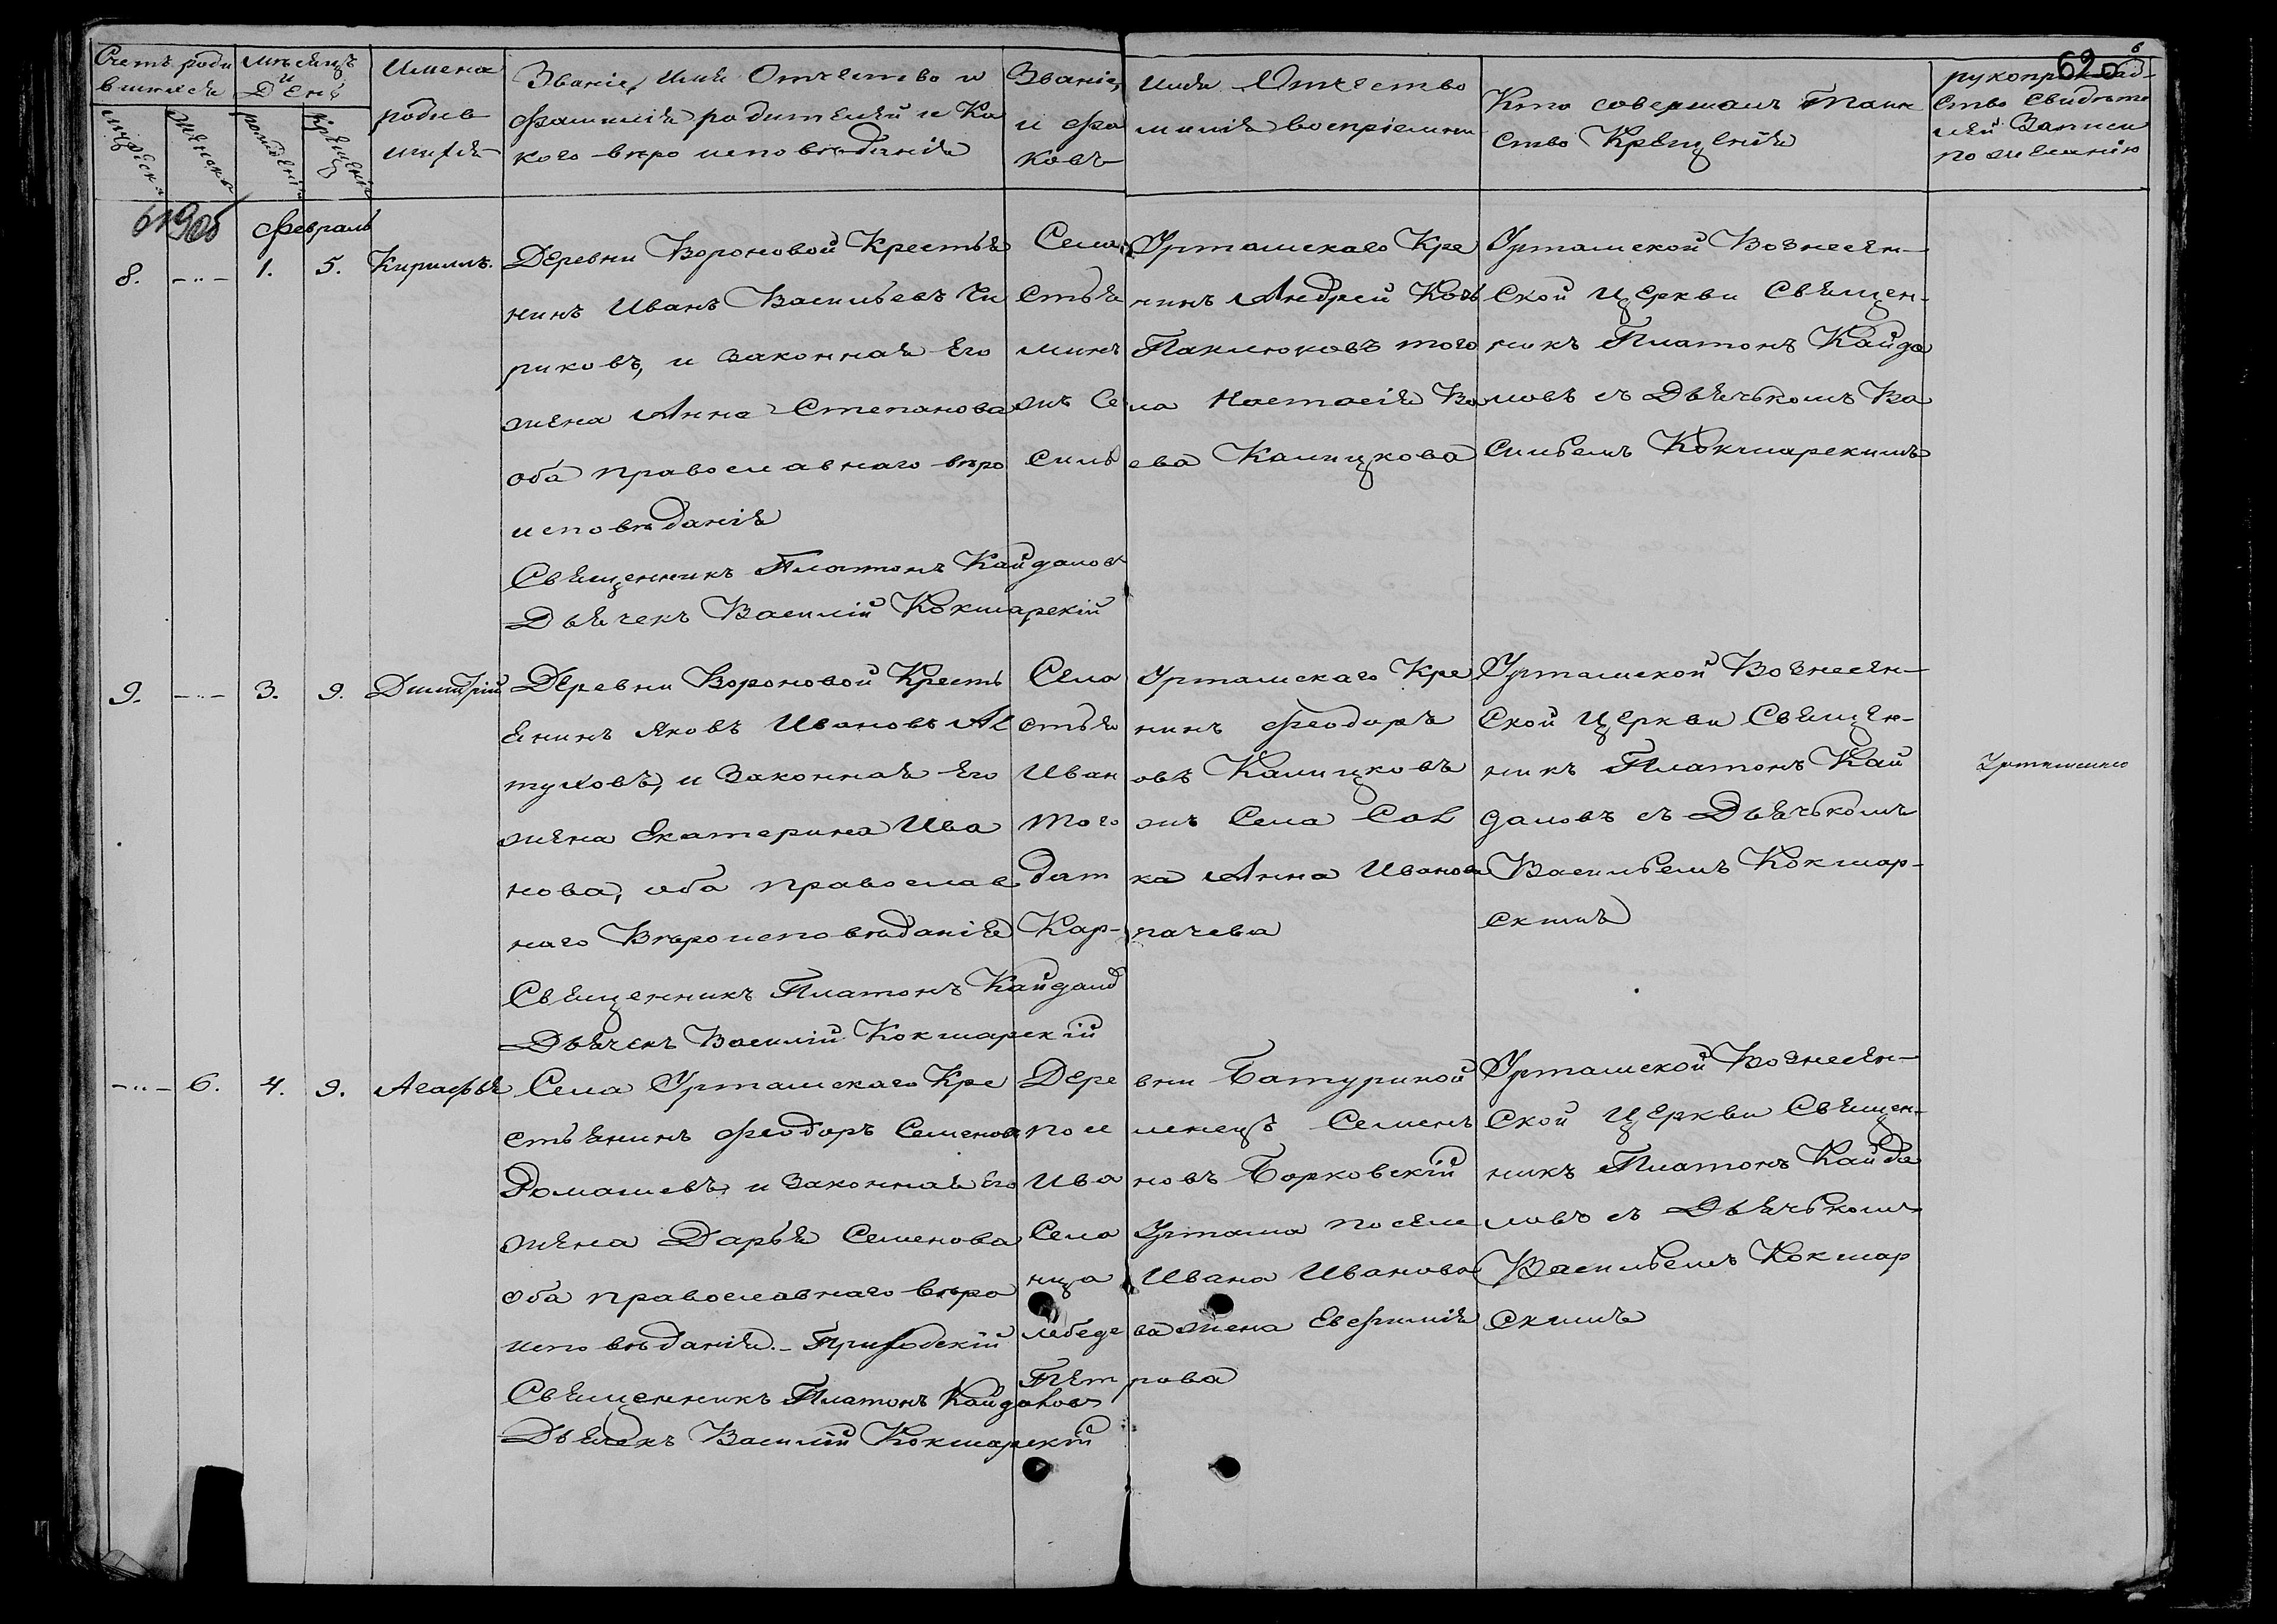 620
6
Счетъ роди
вшихся
Мѣсяцъ
и
День
мужеска
женска
рожденія
крещенія
Имена
родив
шихся
Званіе, имя Отчество и
фамилія родителей и Ка
кого вѣро исповѣданія
Званіе, имя Отчество
и фа милія воспріемни
ковъ
Кто совершалъ Таин
ство Крещенія
рукоприклад-
ство свидѣте
лей Записи
по желанію
февраль
8. -"- 1. 5. Кириллъ.
Деревни Вороновой Крестья
нинъ Иванъ Васильевъ Чи
риковъ, и законная Его
жена Анна Степанова
оба православнаго вѣро
исповѣданія
Священникъ Платонъ Кайдалов
Дьячекъ Василій Кокшарскій
Села Урташскаго Кре
стья нинъ Андрей Козь
минъ Паклюковъ того
жъ Се ла Настасія Ва
силь ева Калицкова
Урташской Вознесен-
ской церкви Священ-
никъ Платонъ Кайда
ловъ съ Дьячькомъ Ва
сильемъ Кокшарскимъ
9. -"- 3. 9. Димитрій
Деревни Вороновой Кресть
енинъ Яковъ Ивановъ Ал
туховъ, и Законная Его
жена Екатерина Ива
нова, оба православ
наго Вѣроисповѣданія
Священникъ Платонъ Кайдалов
Дьячекъ Василій Кокшарскій
Села Урташскаго Кре
стья нинъ Феодоръ
Иван овъ Калицковъ
того жъ Села Сол
дат ка Анна Иванова
Кар- пачева
Урташской Вознесен-
ской церкви Священ-
никъ Платонъ Кай
даловъ съ Дьячькомъ
Васильемъ Кокшар-
скимъ
-"- 6. 4. 9. Агафья
Села Урташскаго Кре
стьянинъ Феодоръ Семеновъ
Домашевъ, и законная Его
жена Дарья Семенова
оба православнаго вѣро
исповѣданія. - Приходскій
Священникъ Платонъ Кайдаловъ
Дьячекъ Василій Кокшарскій
Дере вни Батуриной
посе ленецъ Семенъ
Ива новъ Борковскій
Села Урташа поселе
нца Ивана Иванова
Лебеде ва жена Евфимія
Пет рова
Урташской Вознесен-
ской Церкви Священ-
никъ Платонъ Кайда
ловъ съ Дьячькомъ
Васильемъ Кокшар
скимъ